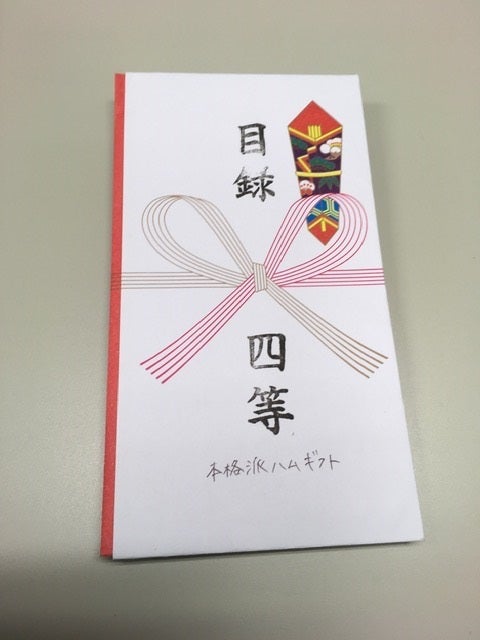 目録
四等
本格派ハムギフト